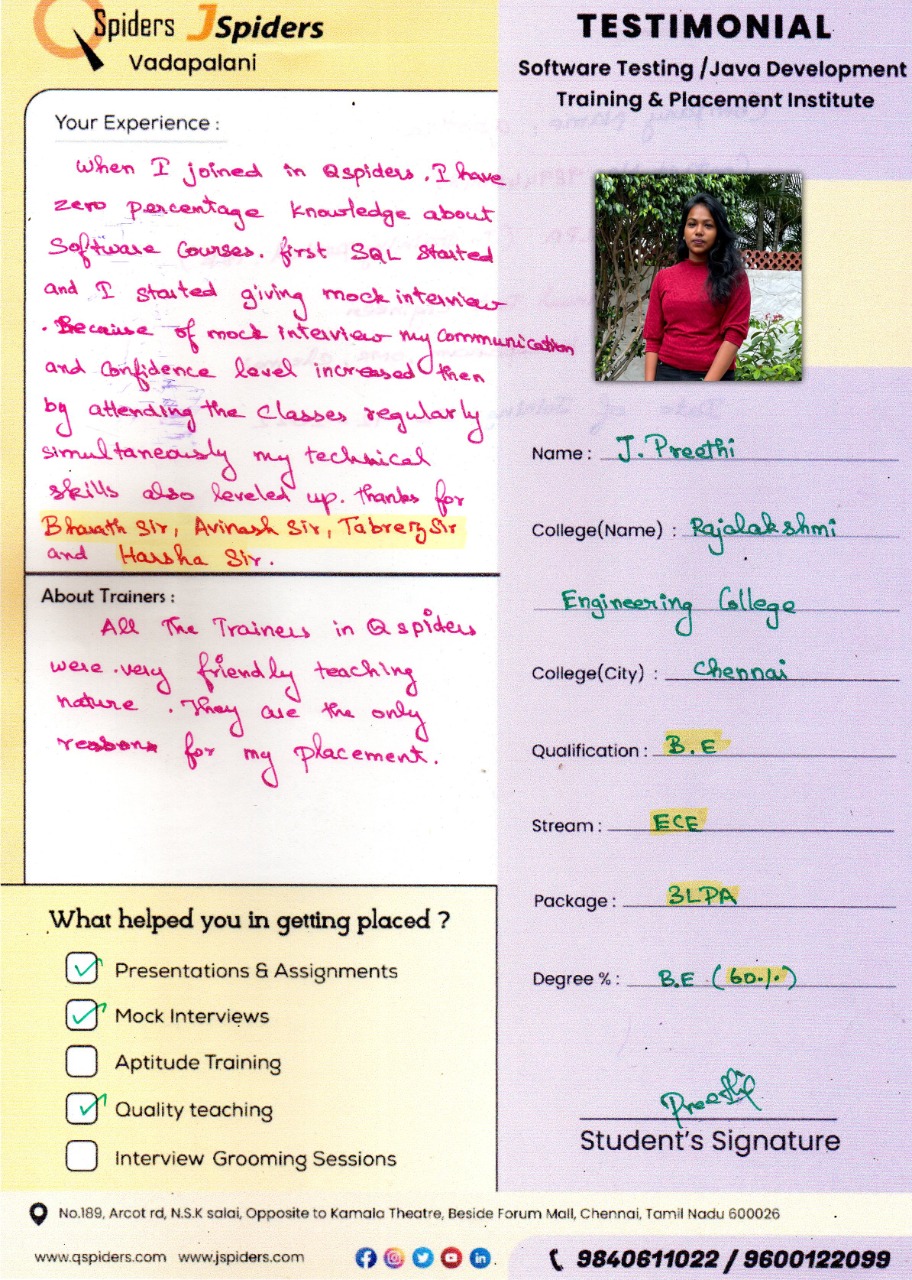 QSpiders JSpiders
Vadapalani
TESTIMONIAL
Software Testing /Java Development
Training & Placement Institute
Your Experience :
When I joined in Qspiders. I have
zero percentage knowledge about
Software Courses. first SQL started
and I started giving mock interview
. Because of mock interview my communication
and confidence level increased then
by attending the classes regularly
simultaneously my technical
skills also leveled up. thanks for
Bharath Sir, Avinash Sir, Tabrez Sir
and Harsha Sir.
About Trainers :
All The Trainers in Qspiders
were very friendly teaching
nature . They are the only
reasons for my placement.
What helped you in getting placed ?
Presentations & Assignments
Mock Interviews
Aptitude Training
Quality teaching
Interview Grooming Sessions
Name : J. Preethi
College(Name) : Rajalakshmi
Engineering College
College(City) : Chennai
Qualification : B.E
Stream : ECE
Package : 3LPA
Degree % : B.E (60%)
Preethi
Student's Signature
No.189, Arcot rd, N.S.K salai, Opposite to Kamala Theatre, Beside Forum Mall, Chennai, Tamil Nadu 600026
www.qspiders.com www.jspiders.com
9840611022 / 9600122099